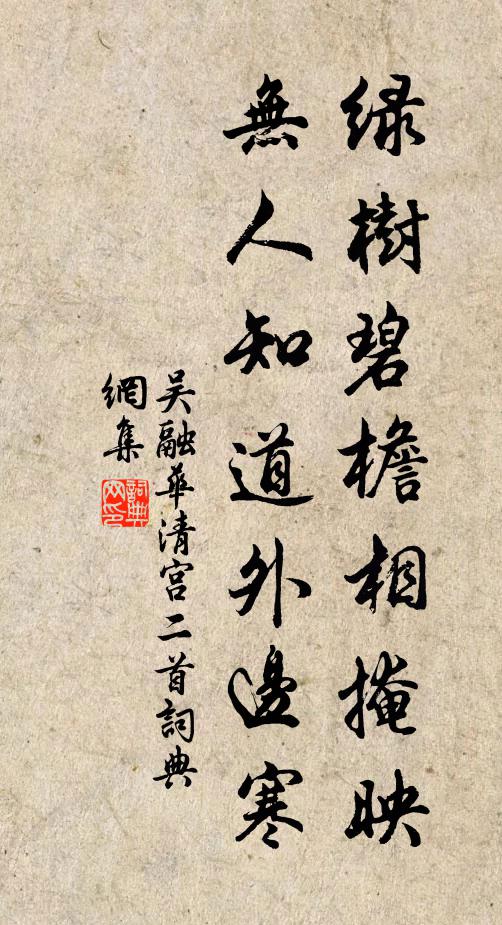 绿樹碧檐相掩映
無人知道外邊寒
吴融華清宫二首詞典
網集
詞典
网印